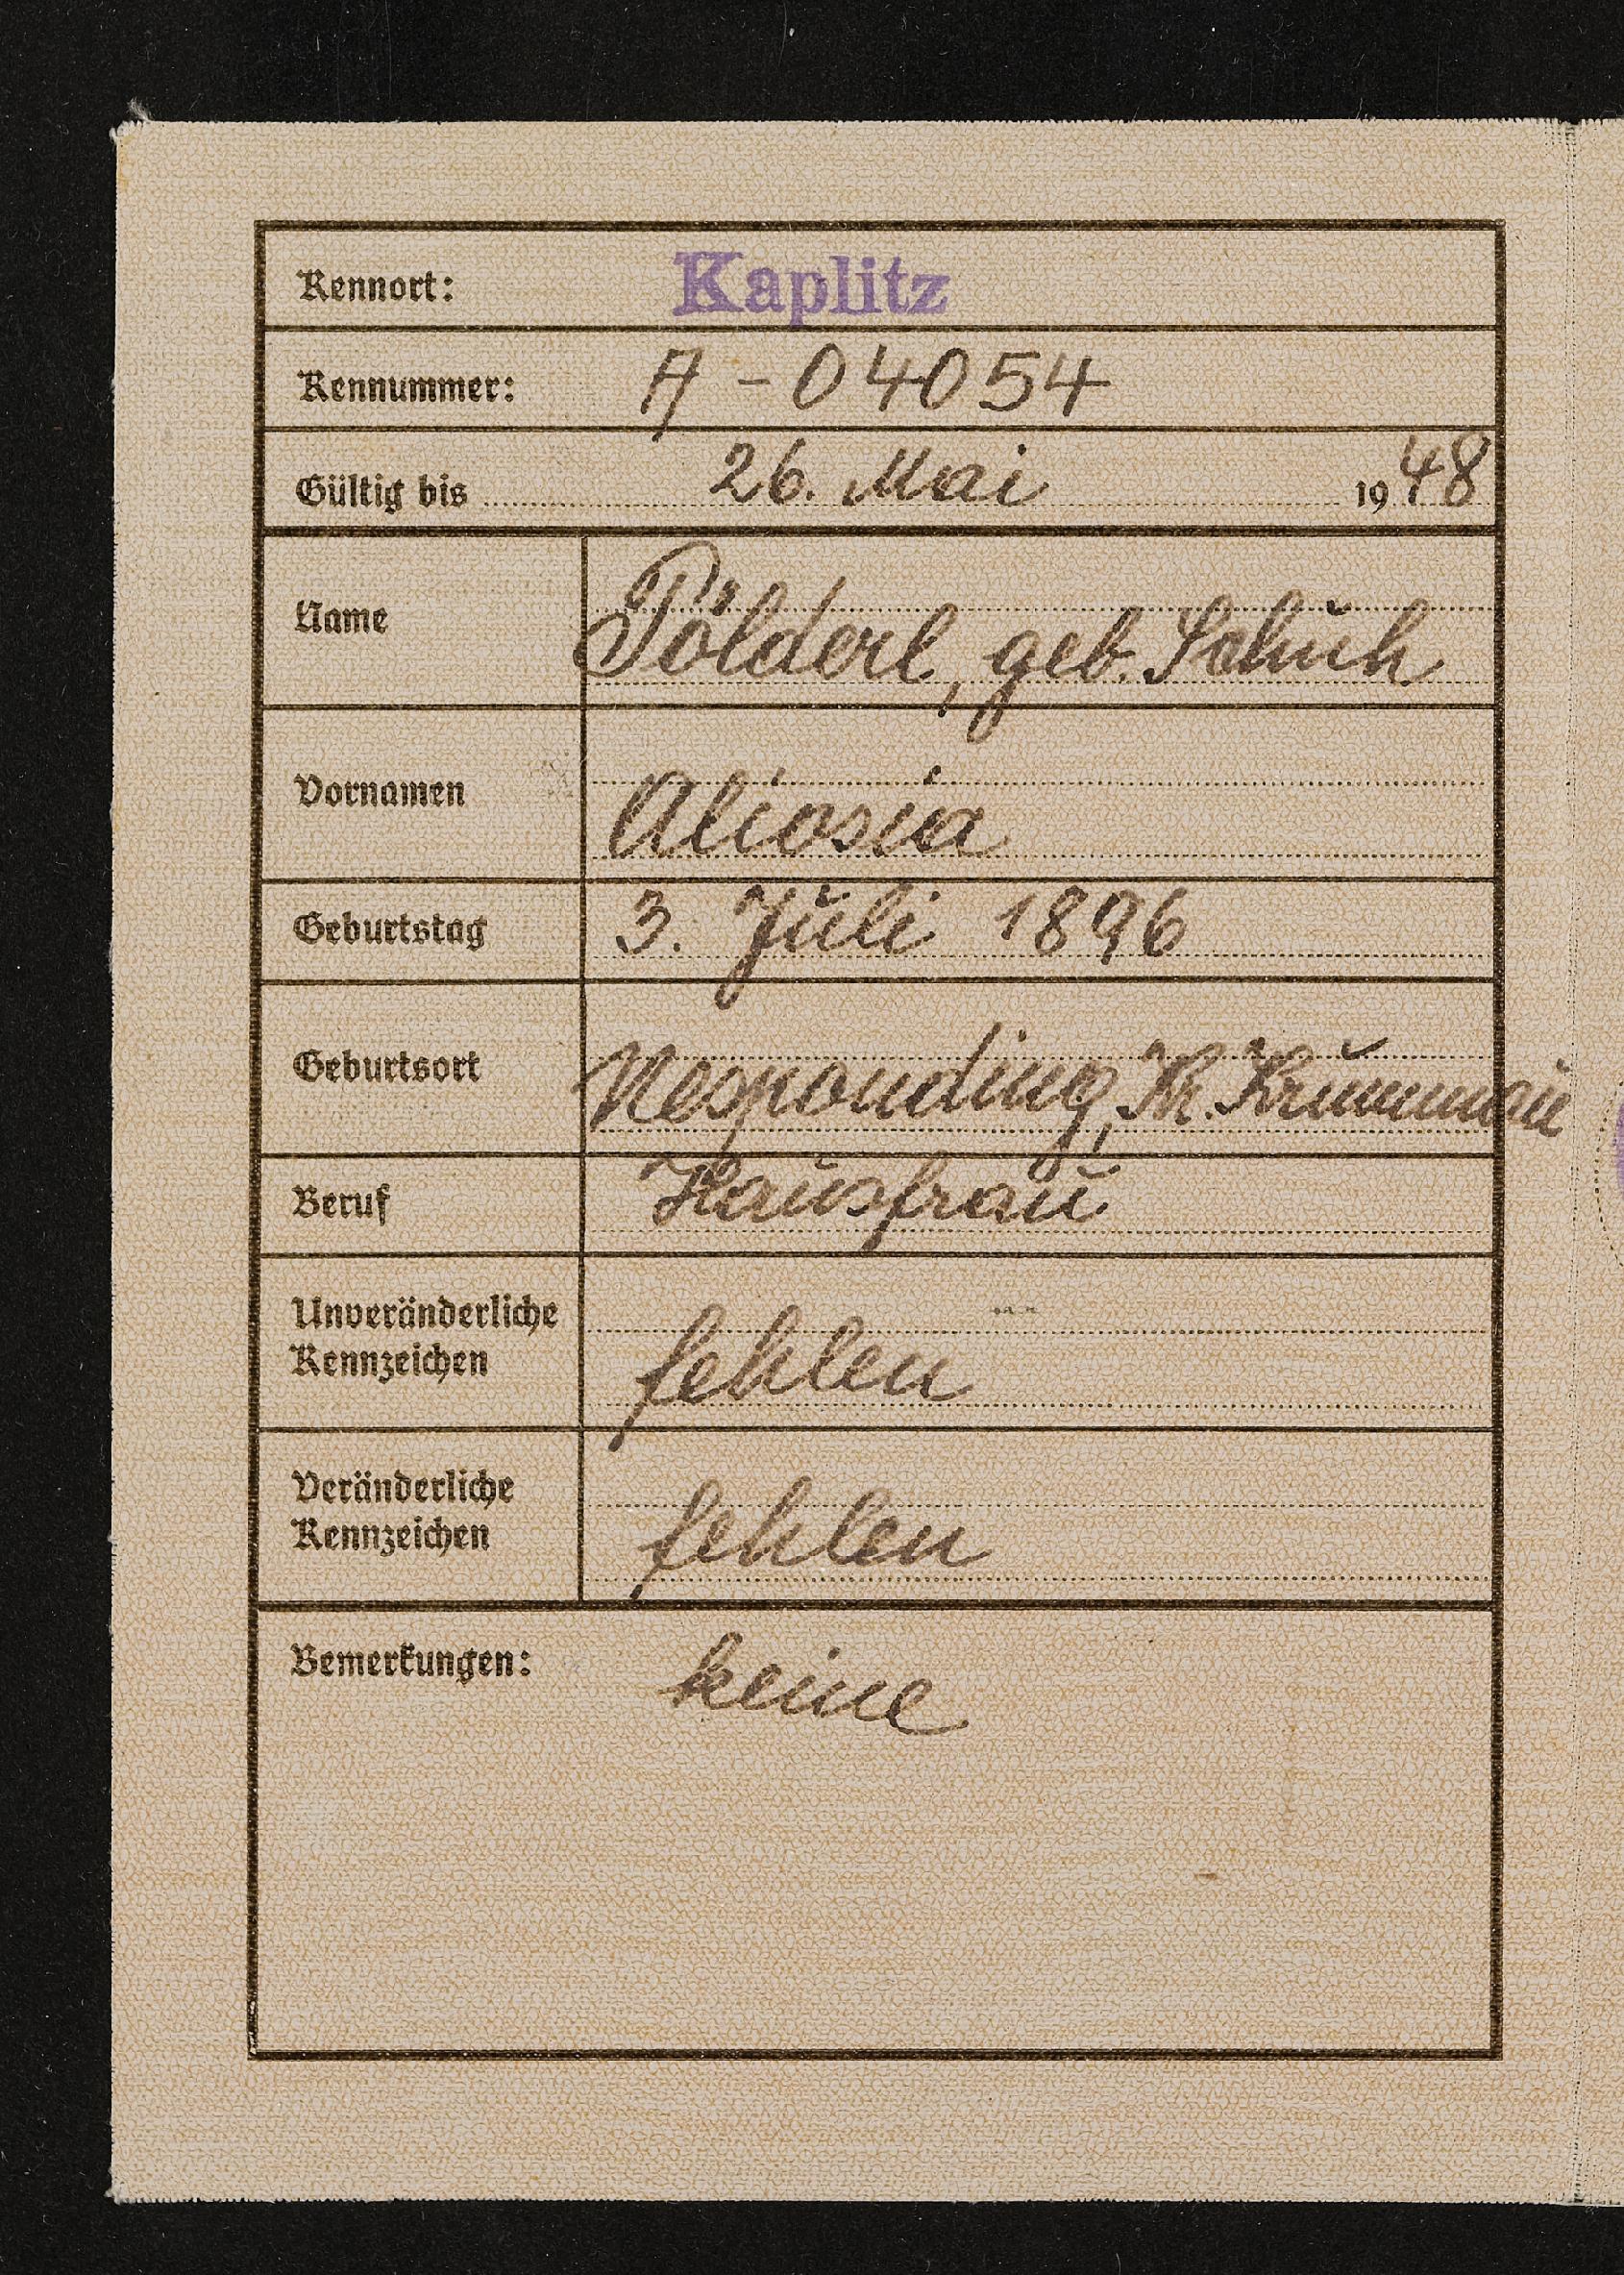 Kennort: Kaplitz
Kennummer: A - 04054
Gültig bis 26. Mai 1948
Name Pölderl, geb. Schuh
Vornamen Aliosia
Geburtstag 3. Juli 1896
Geburtsort Nesponding, Kr. Krummau
Beruf Hausfrau
Unveränderliche
Kennzeichen fehlen
Veränderliche
Kennzeichen fehlen
Bemerkungen: keine